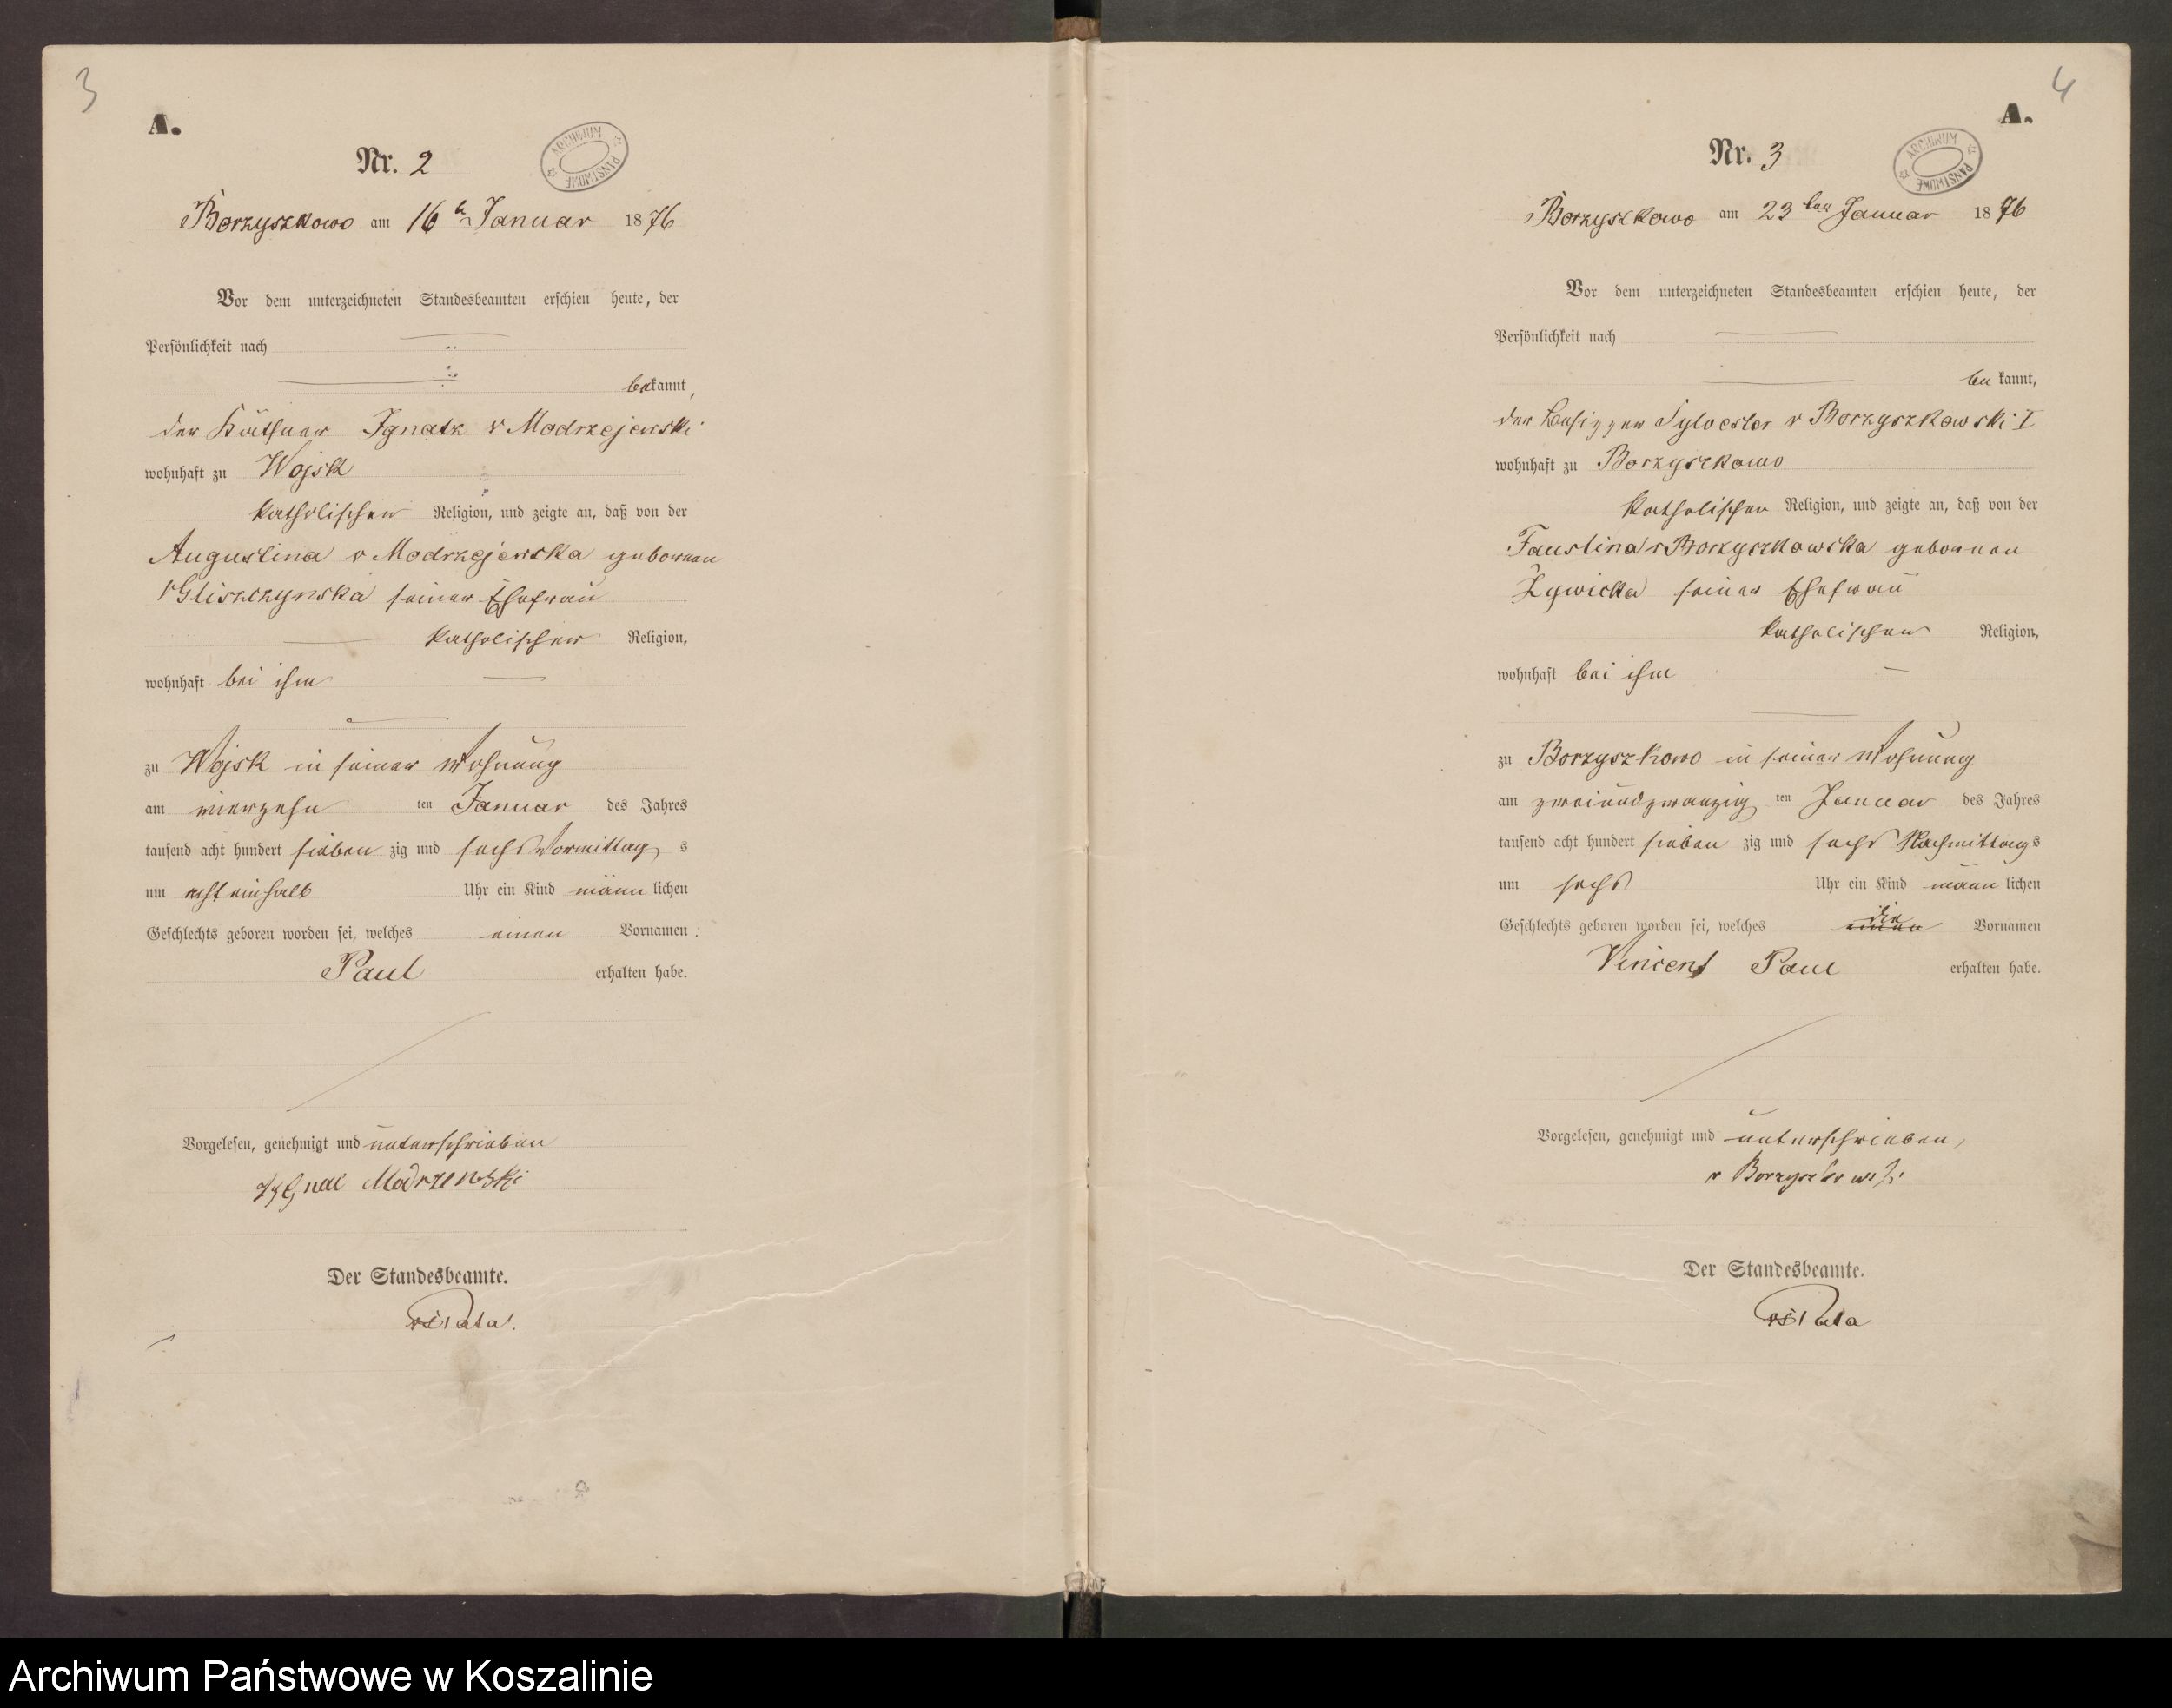 3
A.
Nr. 2
ARCHIWUM PAŃSTWOWE
Borzyszkowo am 16 Januar 1876
Vor dem unterzeichneten Standesbeamten erschien heute, der
Persönlichkeit nach
bekannt,
der Käthner Ignatz v Modrzejewski
wohnhaft zu Wojsk
katholischer Religion, und zeigte an, daß von der
Augustina v Modrzejewska geboren
v Gliszczynska seiner Ehefrau
katholischer Religion,
wohnhaft bei ihm
zu Wojsk in seiner Wohnung
am vierzehn ten Januar des Jahres
tausend acht hundert sieben zig und sechs Vormittag s
um acht einhalb Uhr ein Kind männ lichen
Geschlechts geboren worden sei, welches einen Vornamen
Paul erhalten habe.
Vorgelesen, genehmigt und unterschrieben
Modrzewski
Der Standesbeamte.
4
A.
Nr. 3
ARCHIWUM PAŃSTWOWE
Borzyszkowo am 23 ten Januar 1876
Vor dem unterzeichneten Standesbeamten erschien heute, der
Persönlichkeit nach
be kannt,
der Besitzer Sylvester v Borzyszkowski I
wohnhaft zu Borzyszkowo
katholischer Religion, und zeigte an, daß von der
Faustina v Borzyszkowska geborenen
Żywicka seiner Ehefrau
katholischer Religion,
wohnhaft bei ihm
zu Borzyszkowo in seiner Wohnung
am zweiundzwanzig ten Januar des Jahres
tausend acht hundert sieben zig und sechs Nachmittag s
um sechs Uhr ein Kind männ lichen
Geschlechts geboren worden sei, welches einen die Vornamen
Vincent Paul erhalten habe.
Vorgelesen, genehmigt und unterschrieben,
v Borzyszkowski
Der Standesbeamte.
Archiwum Państwowe w Koszalinie